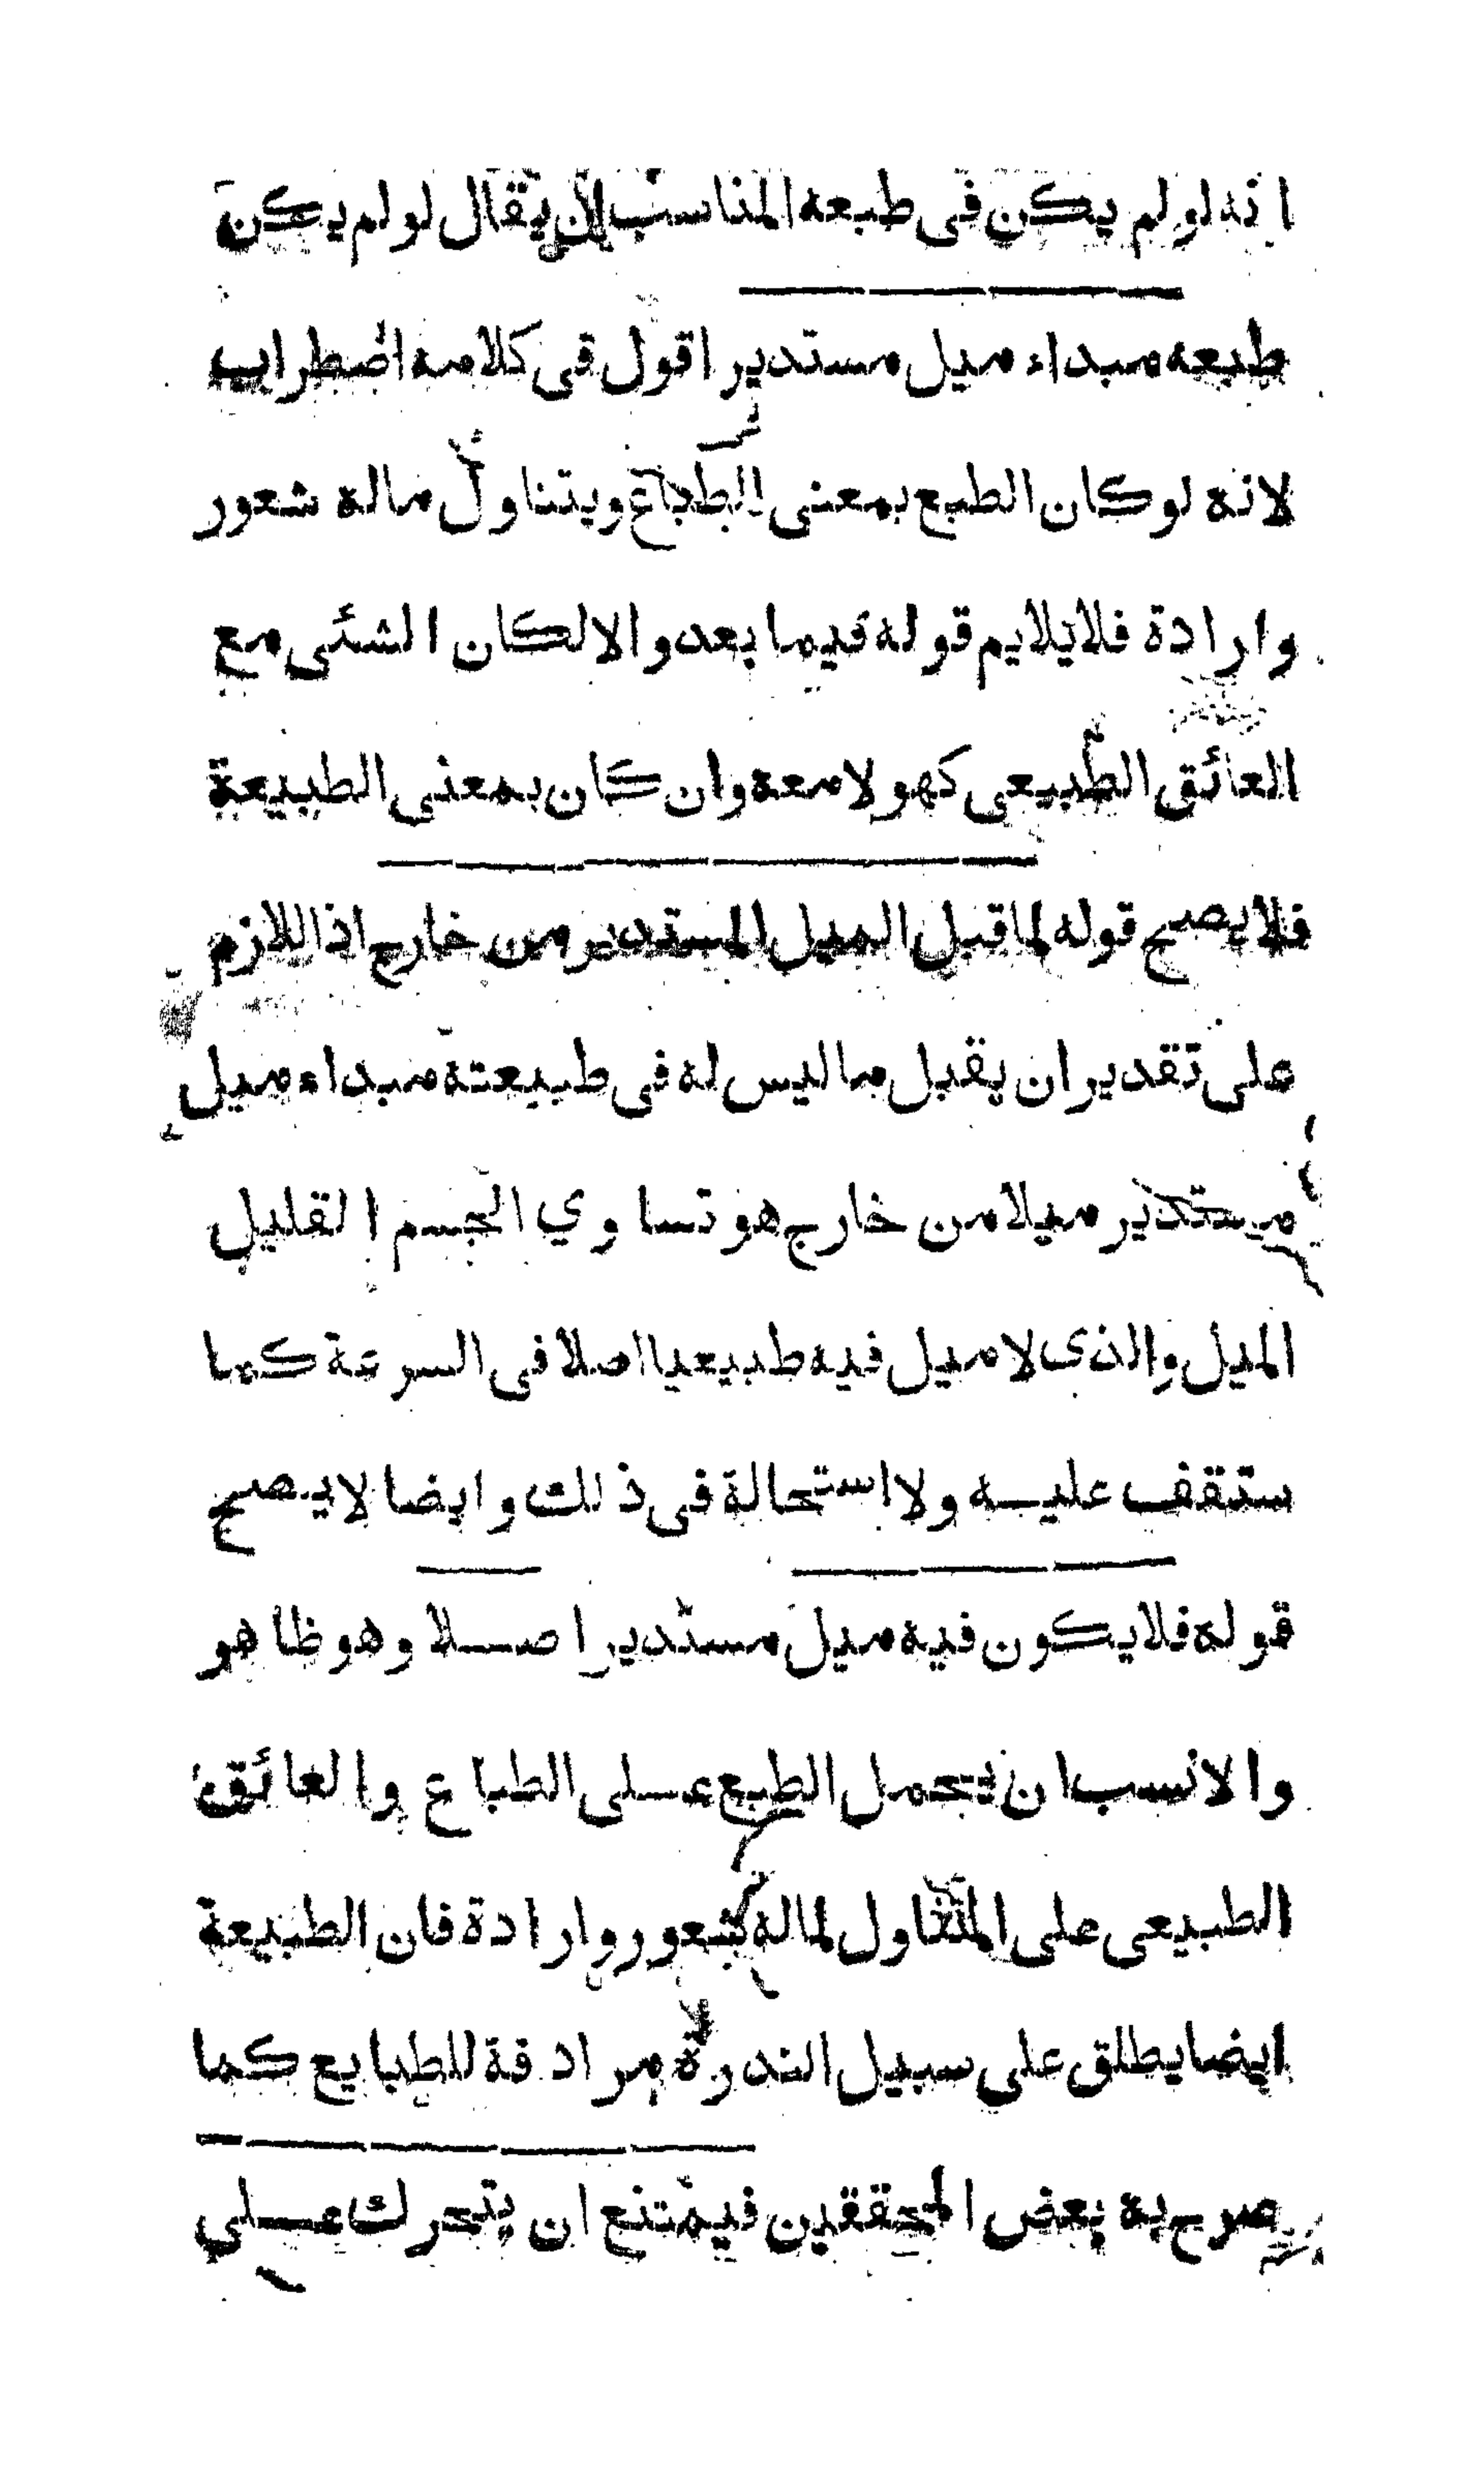 انه لو لم يكن فى طبعه المناسب ان يقال لو لم يكن
طبعه مبداء ميل مستدير اقول فى كلامه اضطراب
لانه لو كان الطبع بمعنى الطباع ويتناول ماله شعور
وارادة فلا يلايم قوله فيما بعد والا لكان الشئى مع
العائق الطبيعى كهو لا معه وان كان بمعنى الطبيعة
فلا يصح قوله لما قبل الميل المستدير من خارج اذ اللازم
على تقدير ان يقبل ما ليس له فى طبيعته مبداء ميل
مستدير ميلا من خارج هو تساوي الجسم القليل
الميل والذى لا ميل فيه طبيعيا اصلا فى السرعة كما
ستقف عليه ولا استحالة فى ذلك وايضا لا يصح
قوله فلا يكون فيه ميل مستدير اصلا وهو ظاهو
والانسب ان يحمل الطبع على الطباع والعائق
الطبيعى على المتناول لماله شعور وارادة فان الطبيعة
ايضا يطلق على سبيل الندرة مرادفة للطبايع كما
صرح به بعض المحققين فيمتنع ان يتحرك على